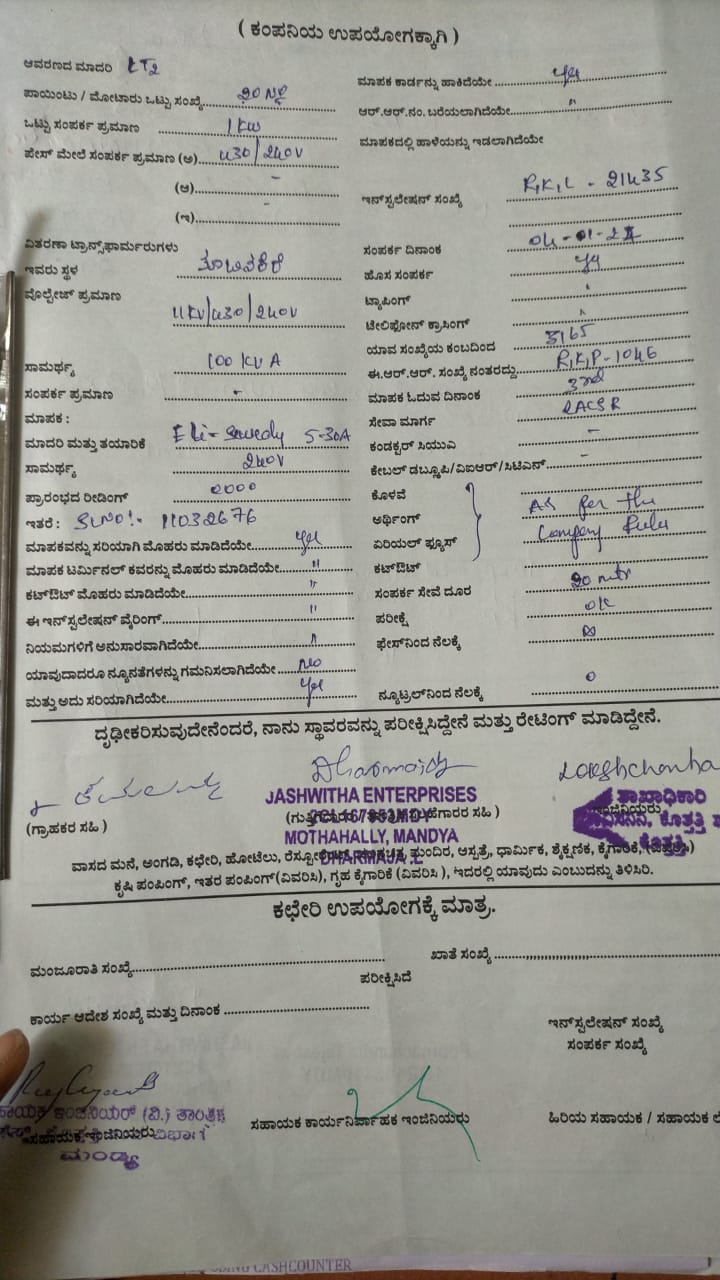 ( ಕಂಪನಿಯ ಉಪಯೋಗಕ್ಕಾಗಿ )
ಆವರಣದ ಮಾದರಿ LT2
ಪಾಯಿಂಟು / ಮೋಟಾರು ಒಟ್ಟು ಸಂಖ್ಯೆ
ಒಟ್ಟು ಸಂಪರ್ಕ ಪ್ರಮಾಣ 1 KW
ಪೇಸ್ ಮೇಲೆ ಸಂಪರ್ಕ ಪ್ರಮಾಣ (ಅ) 430/240V
(ಆ) -
(ಇ) -
ವಿತರಣಾ ಟ್ರಾನ್ಸ್‌ಫಾರ್ಮರುಗಳು
ಇವರು ಸ್ಥಳ
ವೊಲ್ಟೇಜ್ ಪ್ರಮಾಣ 11KV/430/240V
ಸಾಮರ್ಥ್ಯ 100 KVA
ಸಂಪರ್ಕ ಪ್ರಮಾಣ -
ಮಾಪಕ :
ಮಾದರಿ ಮತ್ತು ತಯಾರಿಕೆ 5-30A
ಸಾಮರ್ಥ್ಯ 240V
ಪ್ರಾರಂಭದ ರೀಡಿಂಗ್ 0000
ಇತರೆ : SLNO:- 11032676
ಮಾಪಕವನ್ನು ಸರಿಯಾಗಿ ಮೊಹರು ಮಾಡಿದೆಯೇ Yes
ಮಾಪಕ ಟರ್ಮಿನಲ್ ಕವರನ್ನು ಮೊಹರು ಮಾಡಿದೆಯೇ "
ಕಟ್‌ಔಟ್ ಮೊಹರು ಮಾಡಿದೆಯೇ "
ಈ ಇನ್‌ಸ್ಟಲೇಷನ್ ವೈರಿಂಗ್ "
ನಿಯಮಗಳಿಗೆ ಅನುಸಾರವಾಗಿದೆಯೇ "
ಯಾವುದಾದರೂ ನ್ಯೂನತೆಗಳನ್ನು ಗಮನಿಸಲಾಗಿದೆಯೇ No
ಮತ್ತು ಅದು ಸರಿಯಾಗಿದೆಯೇ Yes
ಮಾಪಕ ಕಾರ್ಡನ್ನು ಹಾಕಿದೆಯೇ Yes
ಆರ್.ಆರ್.ನಂ. ಬರೆಯಲಾಗಿದೆಯೇ "
ಮಾಪಕದಲ್ಲಿ ಹಾಳೆಯನ್ನು ಇಡಲಾಗಿದೆಯೇ
ಇನ್‌ಸ್ಟಲೇಷನ್ ಸಂಖ್ಯೆ R,K,L - 21435
ಸಂಪರ್ಕ ದಿನಾಂಕ
ಹೊಸ ಸಂಪರ್ಕ Yes
ಟ್ಯಾಪಿಂಗ್
ಟೆಲಿಫೋನ್ ಕ್ರಾಸಿಂಗ್
ಯಾವ ಸಂಖ್ಯೆಯ ಕಂಬದಿಂದ 3165
ಈ.ಆರ್.ಆರ್. ಸಂಖ್ಯೆ ನಂತರದ್ದು R,K,P-1046
ಮಾಪಕ ಓದುವ ದಿನಾಂಕ 3rd
ಸೇವಾ ಮಾರ್ಗ RACSR
ಕಂಡಕ್ಟರ್ ಸಿಯುಎ -
ಕೇಬಲ್ ಡಬ್ಲೂಪಿ/ವಿಐಆರ್/ಸಿಟಿಎನ್ -
ಕೊಳವೆ
ಅರ್ಥಿಂಗ್ As per the
ಏರಿಯಲ್ ಫ್ಯೂಸ್ Company Rules
ಕಟ್‌ಔಟ್
ಸಂಪರ್ಕ ಸೇವೆ ದೂರ 20 mtr
ಪರೀಕ್ಷೆ OK
ಫೇಸ್‌ನಿಂದ ನೆಲಕ್ಕೆ ∞
ನ್ಯೂಟ್ರಲ್‌ನಿಂದ ನೆಲಕ್ಕೆ 0
ದೃಢೀಕರಿಸುವುದೇನೆಂದರೆ, ನಾನು ಸ್ಥಾವರವನ್ನು ಪರೀಕ್ಷಿಸಿದ್ದೇನೆ ಮತ್ತು ರೇಟಿಂಗ್ ಮಾಡಿದ್ದೇನೆ.
JASHWITHA ENTERPRISES
(ಗ್ರಾಹಕರ ಸಹಿ )
MOTHAHALLY, MANDYA
DHARMAIA .L
ಶಾಖಾಧಿಕಾರಿ
ವಾಸದ ಮನೆ, ಅಂಗಡಿ, ಕಛೇರಿ, ಹೋಟೆಲು, ಮಂದಿರ, ಆಸ್ಪತ್ರೆ, ಧಾರ್ಮಿಕ, ಶೈಕ್ಷಣಿಕ, ಕೈಗಾರಿಕೆ,
ಕೃಷಿ ಪಂಪಿಂಗ್, ಇತರ ಪಂಪಿಂಗ್(ವಿವರಿಸಿ), ಗೃಹ ಕೈಗಾರಿಕೆ (ವಿವರಿಸಿ ), ಇದರಲ್ಲಿ ಯಾವುದು ಎಂಬುದನ್ನು ತಿಳಿಸಿರಿ.
ಕಛೇರಿ ಉಪಯೋಗಕ್ಕೆ ಮಾತ್ರ.
ಮಂಜೂರಾತಿ ಸಂಖ್ಯೆ
ಖಾತೆ ಸಂಖ್ಯೆ
ಪರೀಕ್ಷಿಸಿದೆ
ಕಾರ್ಯ ಆದೇಶ ಸಂಖ್ಯೆ ಮತ್ತು ದಿನಾಂಕ
ಇನ್‌ಸ್ಟಲೇಷನ್ ಸಂಖ್ಯೆ
ಸಂಪರ್ಕ ಸಂಖ್ಯೆ
ಇಂಜಿನಿಯರ್ (ವಿ.) ತಾಂತ್ರಿಕ
ಸಹಾಯಕ ಇಂಜಿನಿಯರು
ಮಂಡ್ಯ
ಸಹಾಯಕ ಕಾರ್ಯನಿರ್ವಾಹಕ ಇಂಜಿನಿಯರು
ಹಿರಿಯ ಸಹಾಯಕ / ಸಹಾಯಕ
CASHCOUNTER